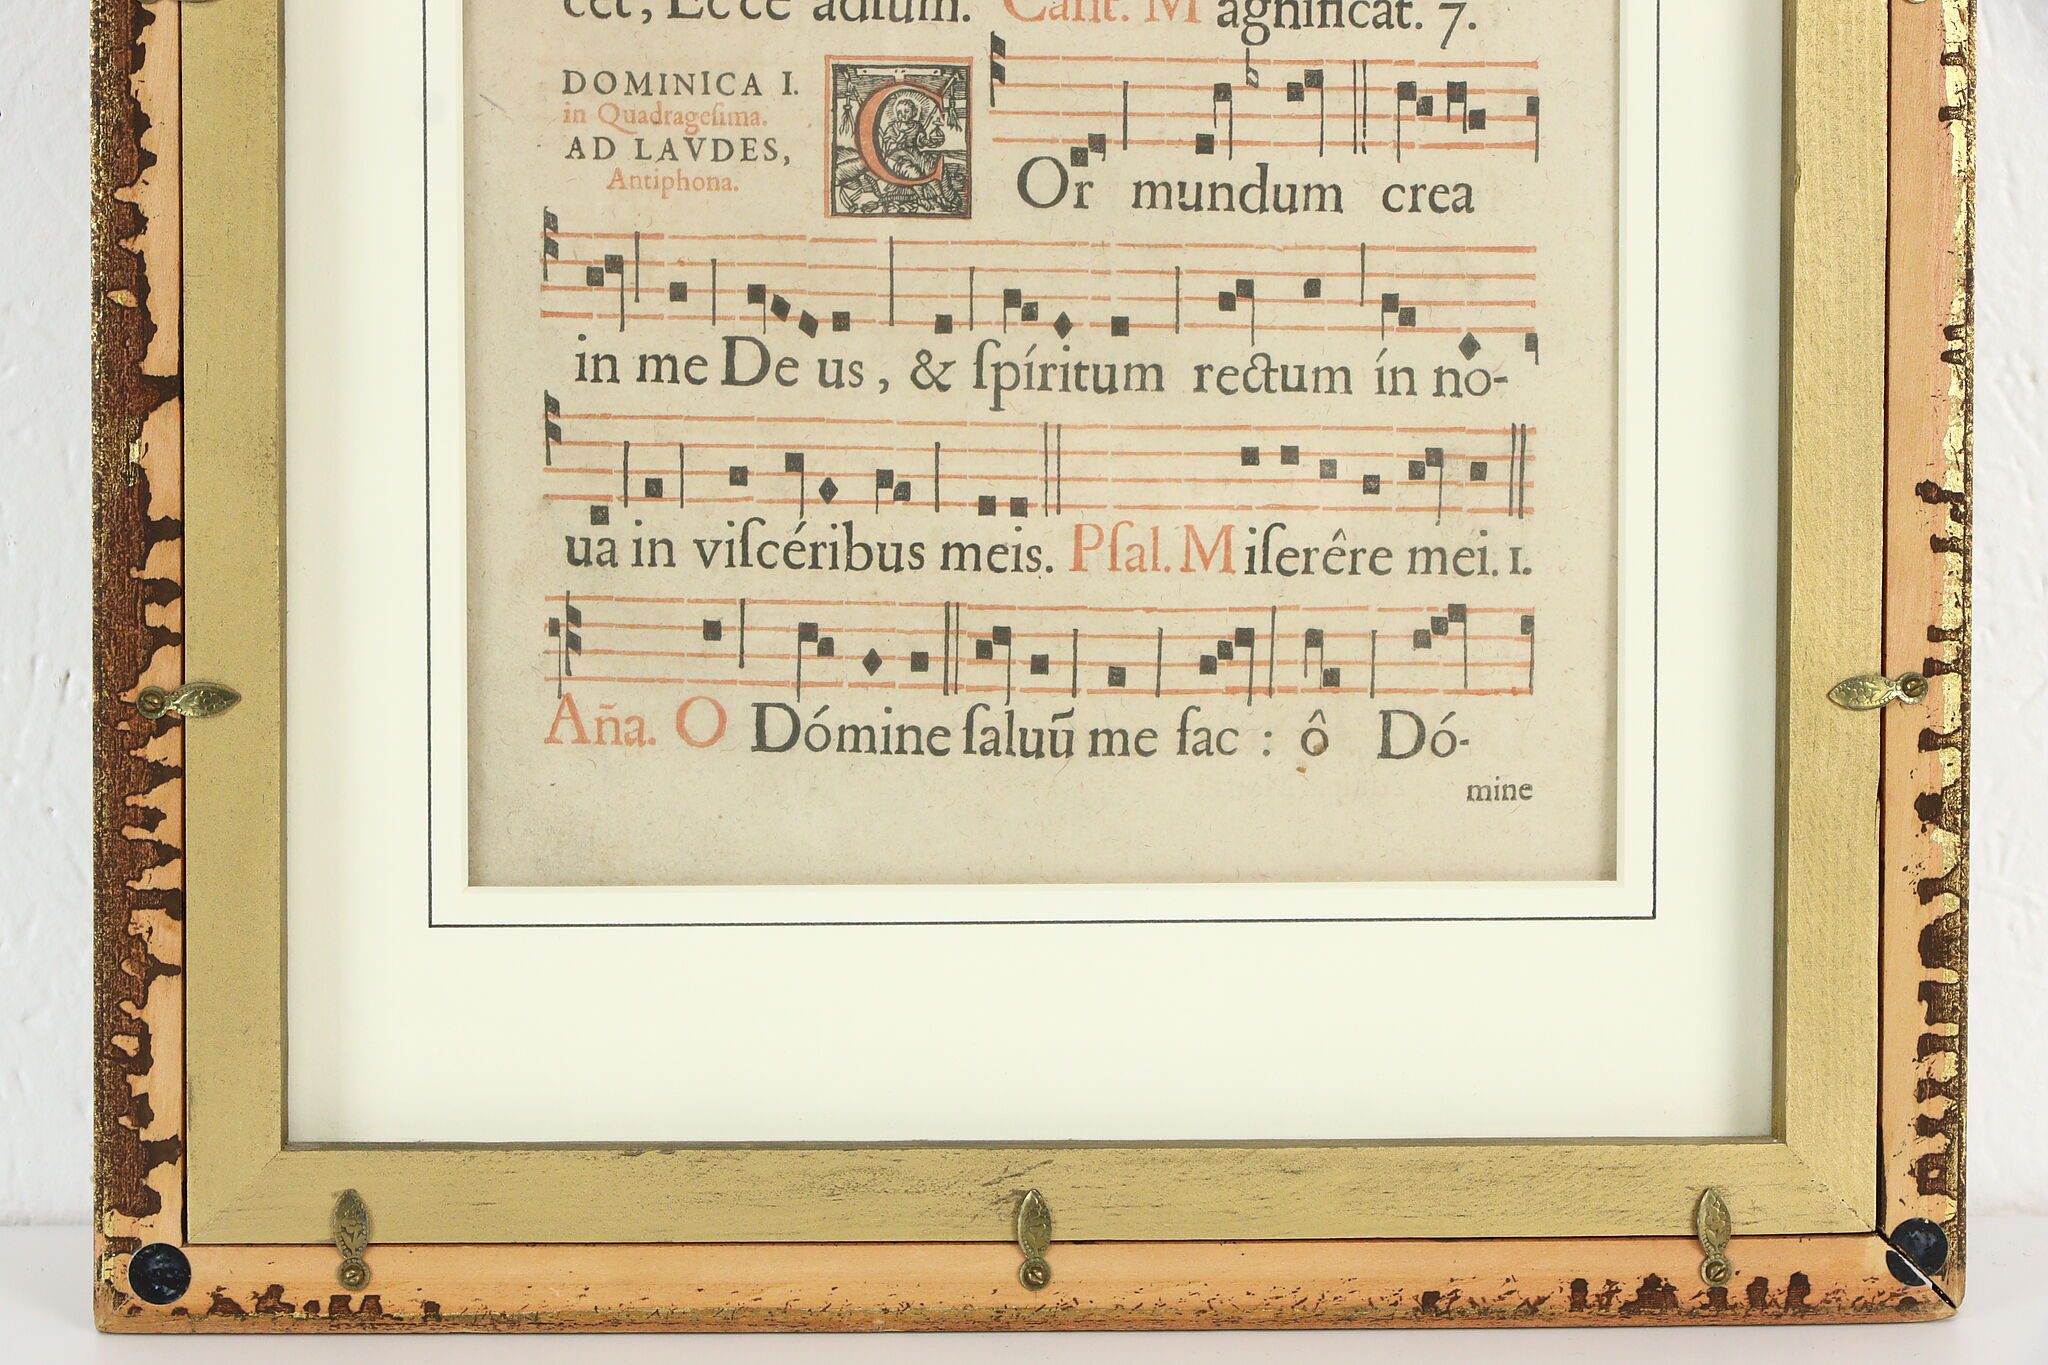 cet, Ecce adsum. Cant. Magnificat. 7.
DOMINICA I.
in Quadrageſima.
AD LAVDES,
Antiphona.
COr mundum crea
in me De us, & ſpíritum rectum ín no-
ua in viſcéribus meis. Pſal. Miſerêre mei. 1.
Aña. O Dómine ſaluũ me fac : ô Dó-
mine